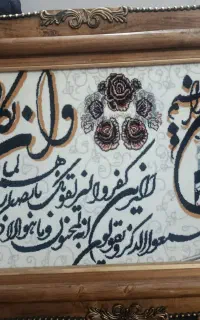 وان يكا
الذين كفروا ليزلقونك بابصارهم لما
سمعوا الذكر ويقولون انه لمجنون وما هو الا